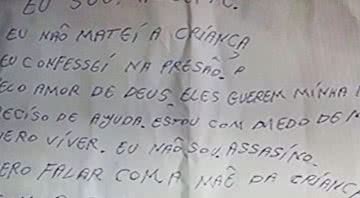 EU SOU.
EU NÃO MATEÍ A CRÍANÇA
EU CONFESSEÍ NA PRESÃO. P
ELO AMOR DE DEUS, ELES QUEREM MINHA
ECISO DE AJUDA. ESTOU COM MEDO DE
UERO VIVER. EU NÃO SOU ASSASINO.
ERO FALAR COM A MÃE DA CRIANÇ